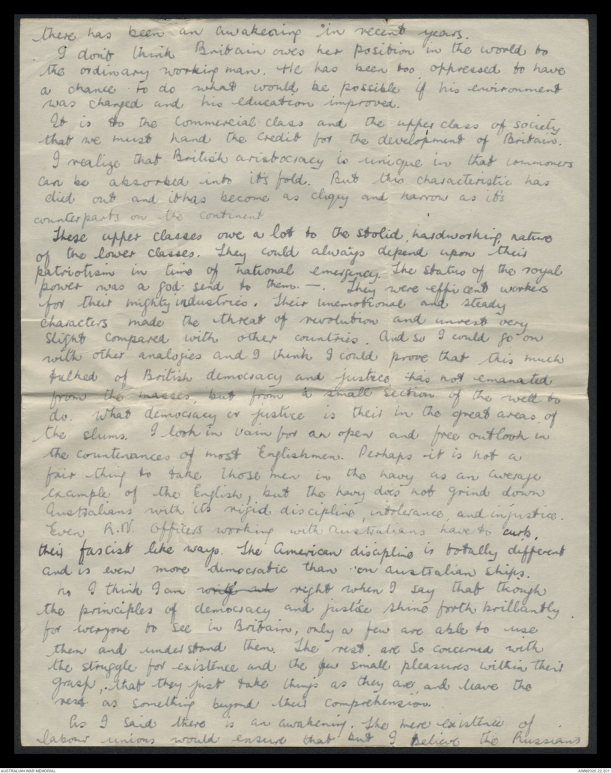 there has been an awakening in recent years.
I don't think Britain owes her position in the world to
the ordinary working man. He has been too oppressed to have
a chance to do what would be possible if his environment
was changed and his education improved.
It is to the Commercial class and the upper class of society
that we must hand the credit for the development of Britain.
I realize that British aristocracy is unique in that commoners
can be absorbed into its fold. But this characteristic has
died out and it has become as cliquy and narrow as its
counterparts on the continent
These upper classes owe a lot to the stolid, hardworking, nature
of the lower classes. They could always depend upon their
patriotism in time of national emergency. The status of the royal
power was a god send to them. —. They were efficent workers
for their mighty industries. Their unemotional and steady
characters made the threat of revolution and unrest very
slight compared with other countries. And so I could go on
with other analogies and I think I could prove that this much
talked of British democracy and justice has not emanated
from the masses, but from a small section of the well to
do. What democracy or justice is their in the great areas of
the slums. I look in vain for an open and free outlook in
the countenances of most Englishmen. Perhaps it is not a
fair thing to take those men in the navy as an average
example of the English, but the navy does not grind down
Australians with its rigid discipline, intolerance, and injustice.
Even R.N. Officers working with Australians have to curb,
their fascist like ways. The American discipline is totally different
and is even more democratic than on Australian ships.
No I think I am right when I say that though
the principles of democracy and justice shine forth brilliantly
for everyone to see in Britain, only a few are able to use
them and understand them. The rest are so concerned with
the struggle for existence and the few small pleasures within their
grasp, that they just take things as they are, and leave the
rest as something beyond their comprehension.
As I said there is an awakening. The mere existence of
labour unions would ensure that but I believe the Russians
AUSTRALIAN WAR MEMORIAL